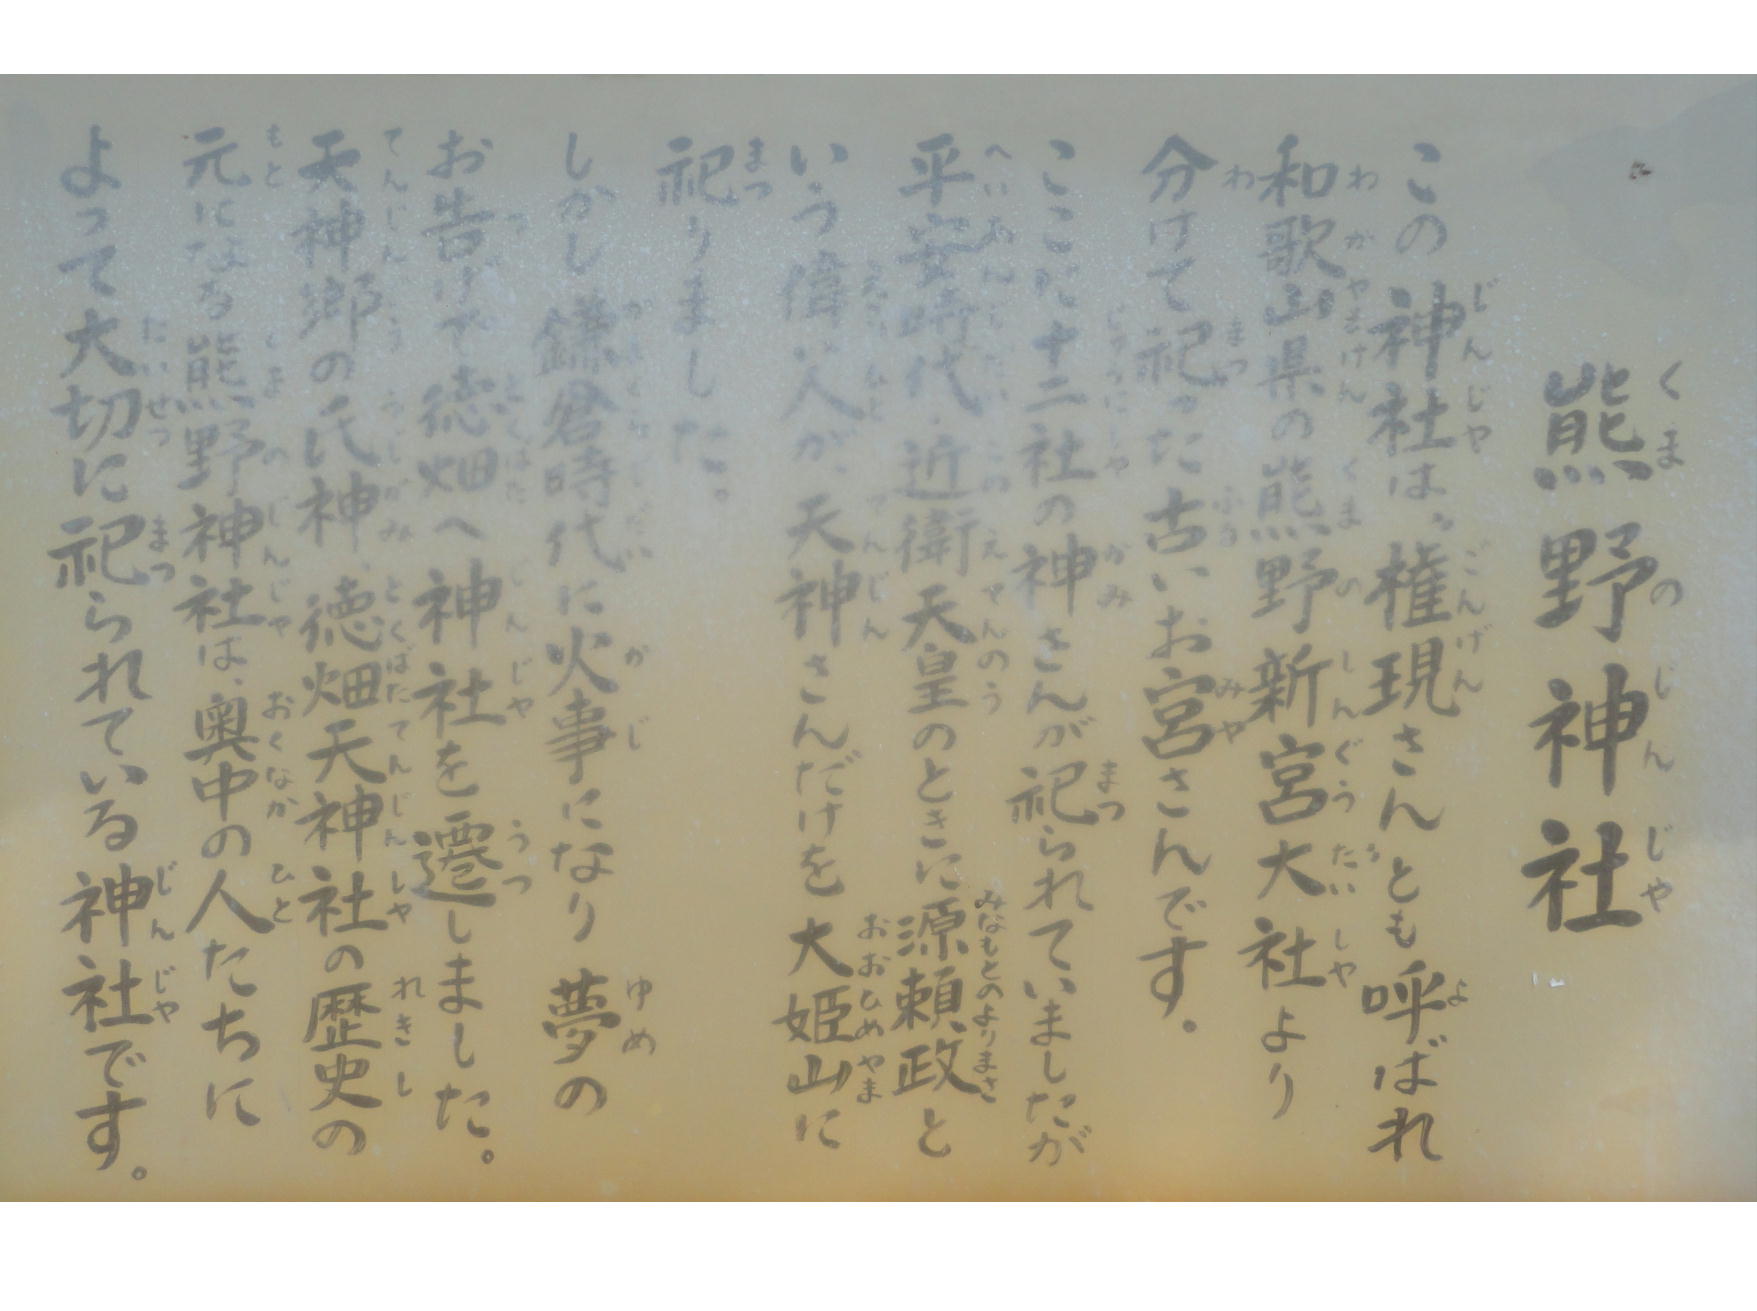 熊野神社
この神社は、権現さんとも呼ばれ
和歌山県の熊野新宮大社より
分けて祀った古いお宮さんです。
ここに十二社の神さんが祀られていましたが
平安時代、近衛天皇のときに源頼政と
いう偉い人が、天神さんだけを大姫山に
祀りました。
しかし鎌倉時代に火事になり夢の
お告げで徳畑へ神社を遷しました。
天神郷の氏神、徳畑天神社の歴史の
元になる熊野神社は、奥中の人たちに
よって大切に祀られている神社です。